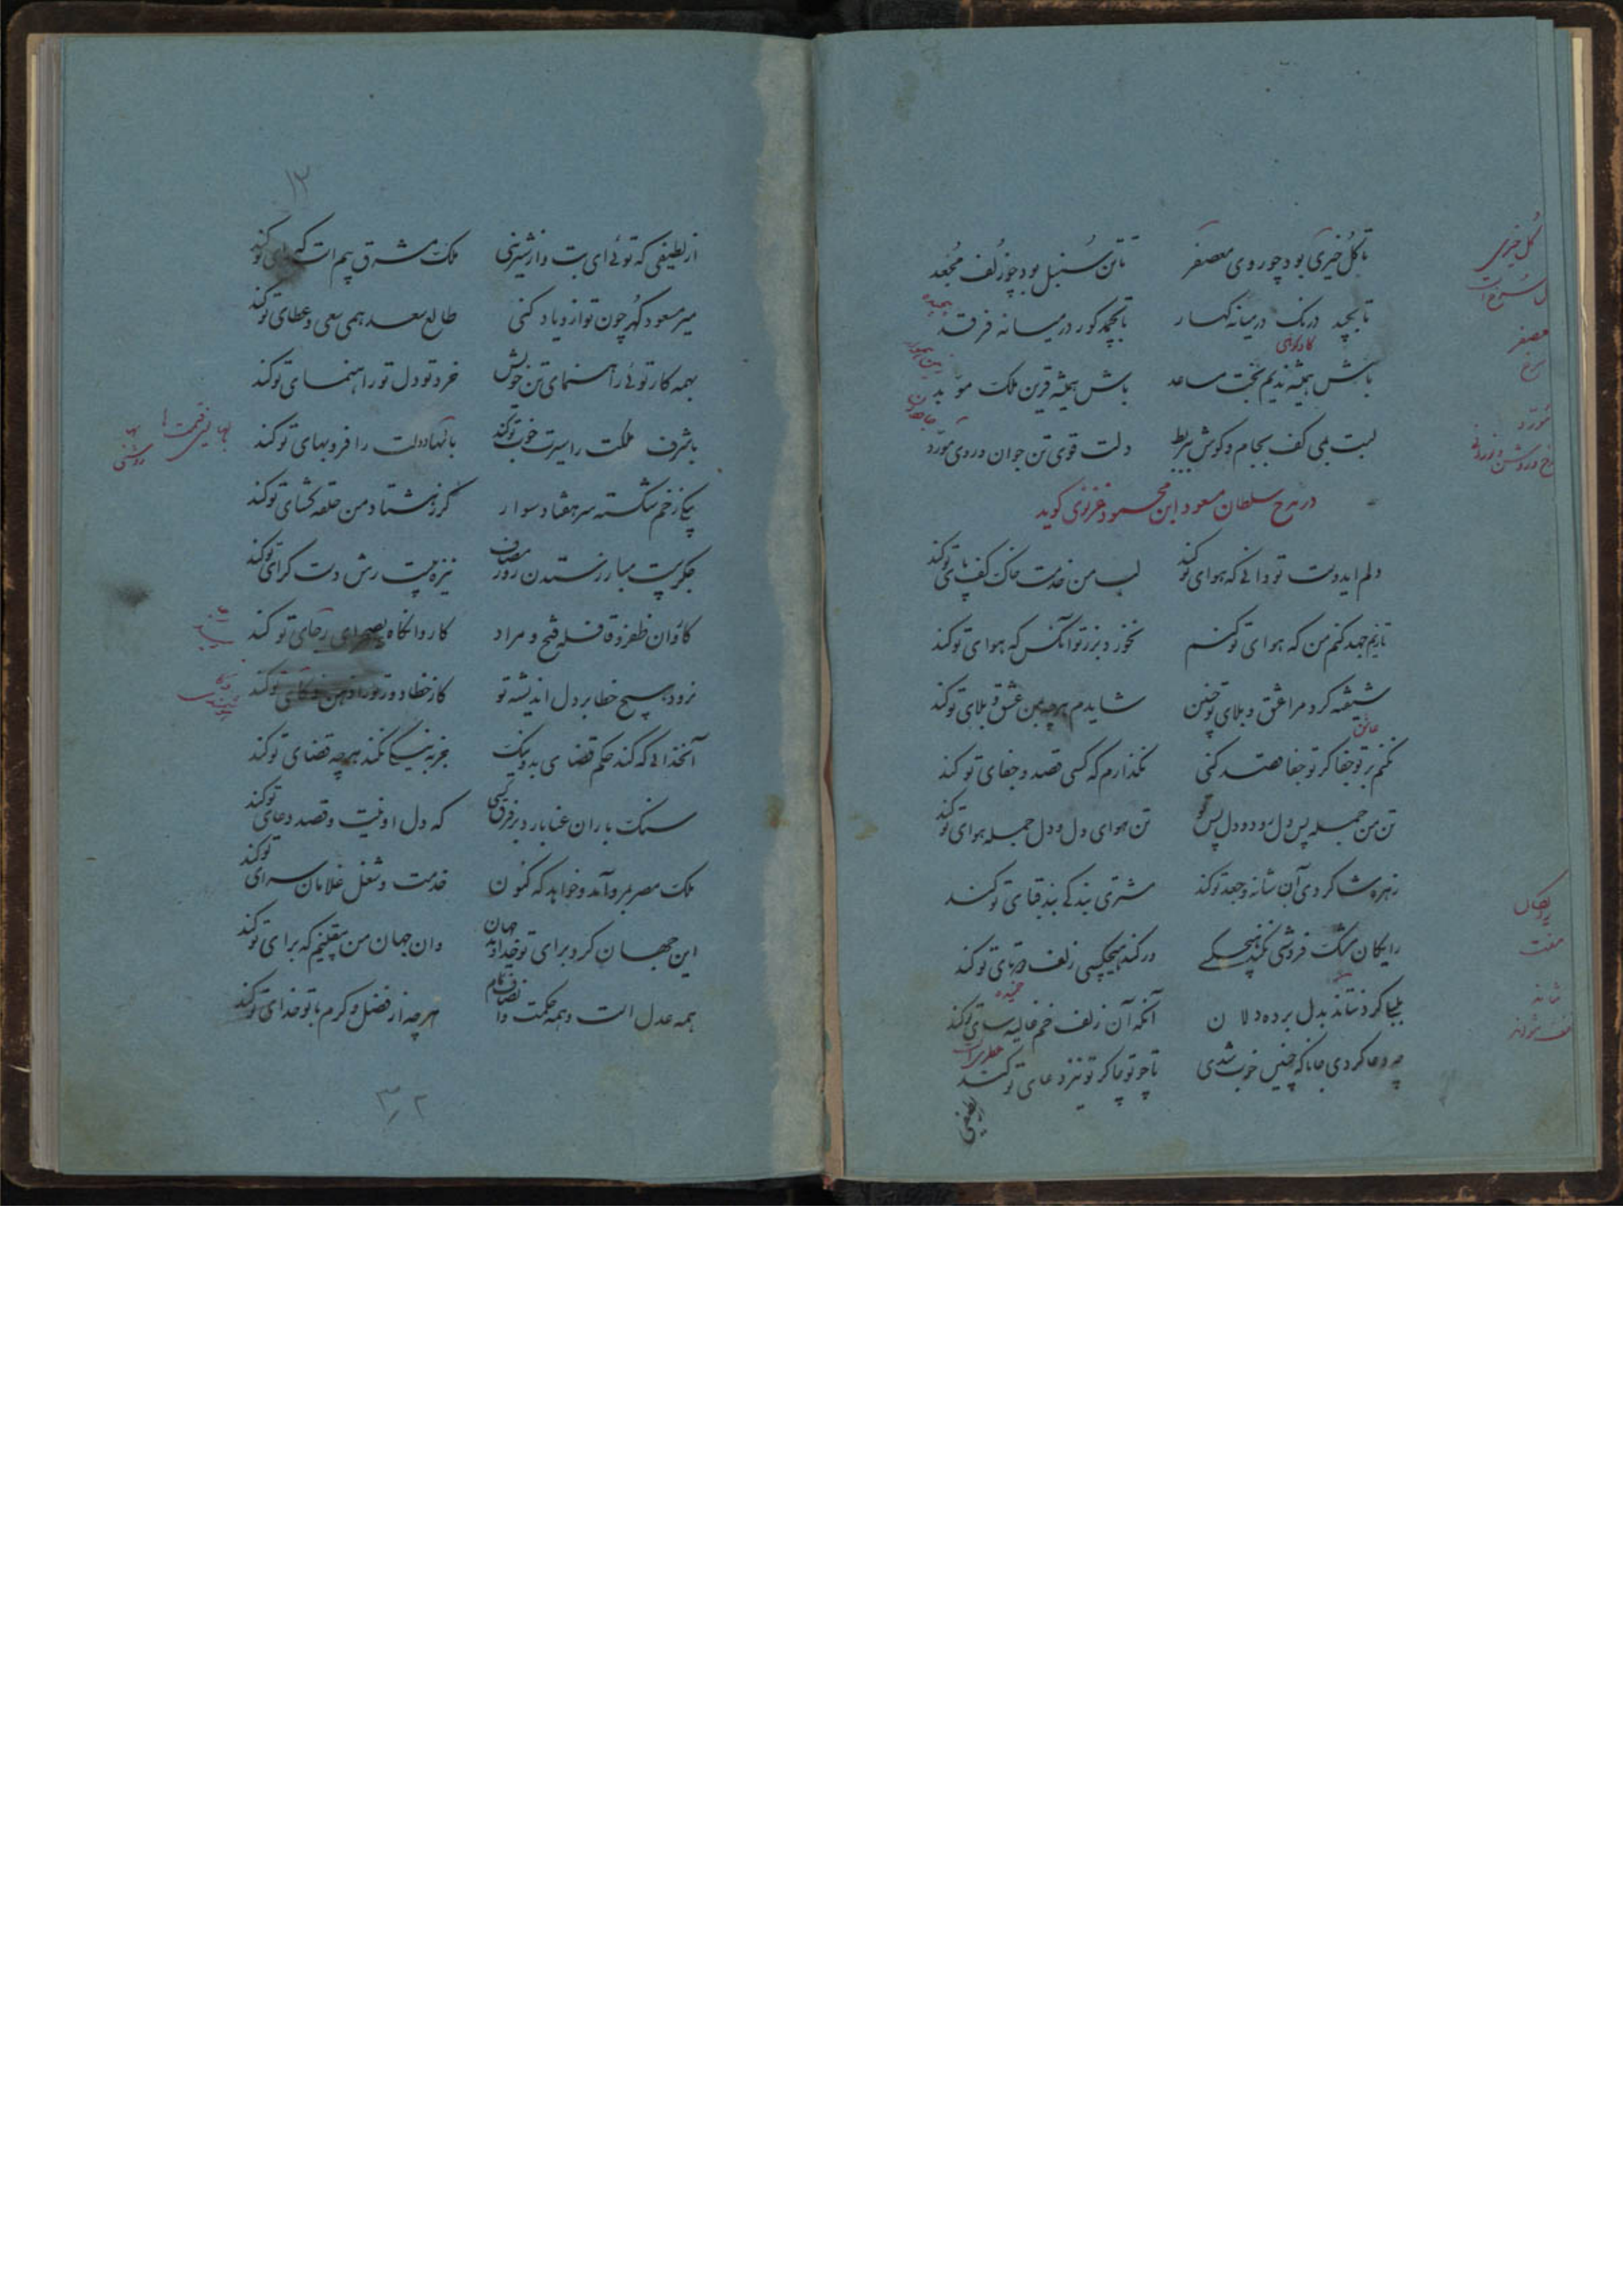 تا گل خیری بود چو روی معصفر تا تن سنبل بود چو زلف مجعد
تا بچمد رنگ در میانه کهسار تا بچمد گور در میانه فرقد
باش همیشه ندیم بخت مساعد باش همیشه قرین ملک موبد
لبت بمی کف بجام و گوش ببربط دلت قوی تن جوان و روی مورد
در مدح سلطان مسعود ابن محمود غزنوی گوید
دلم ایدوست تو دانی که هوای تو کند لب من خدمت خاک کف پای تو کند
تا زیم جهد کنم من که هوای تو کنم بخورد بر ز تو آنکس که هوای تو کند
شیفته کرد مرا عشق و بلای تو چنین شایدم هر چه بمن عشق و بلای تو کند
نکنم بر تو جفا گر تو جفا قصد کنی نگذارم که کسی قصد جفای تو کند
تن من جمله پس دل رود و دل پس تو تن هوای دل و دل جمله هوای تو کند
زهره شاگردی آن شانه و جعد تو کند مشتری بندگی بند قبای تو کند
رایگان مشک فروشی نکند هیچکسی ور کند هیچکسی زلف دوتای تو کند
آنکه آن زلف خم غالیه سای تو کند
چه دعا کردی جانا که چنین خوب شدی تا چو تو چاکر تو نیز دعای تو کند
از لطیفی
گل خیری
معصفر
سرخ
مورد
رایکان
مفت
عاشق
خمیده
۱۳
از لطیفی که توئی ای بت و از شیرینی ملک مشرق بیم است که رای تو کند
میر مسعود گهر چون تو ازو یاد کنی طالع سعد همی سعی و عطای تو کند
بهمه کار توئی راهنمای تن خویش خرد تو دل تو راهنمای تو کند
با شرف ملکت را سیرت خوب تو کند با بها دولت را فر و بهای تو کند
یکی زخم شکسته سر هفتاد سوار گرز هشتاد من حلقه گشای تو کند
جگر بیست مبارز ستدن روز مصاف نیزه بیست رش دست گرای تو کند
کاروان ظفر و قافله فتح و مراد کاروانگاه بصحرای رجای تو کند
نرود هیچ خطا بر دل اندیشه تو کز خطا دور ترا ذهن و ذکای تو کند
آنخدائی که کند حکم قضای بد و نیک بجز نیک نکند هر چه قضای تو کند
سنگ باران عنا بارد بر فرق کسی که دل او نیت و قصد دعای تو کند
ملک مصر برو آمد و خواهد که کنون خدمت و شغل غلامان سرای تو کند
این جهان کرد برای تو خداوند جهان وان جهان من بیقینم که برای تو کند
همه عدل است و همه حکمت و انصاف تمام هر چه از فضل و کرم با تو خدای تو کند
روشنی